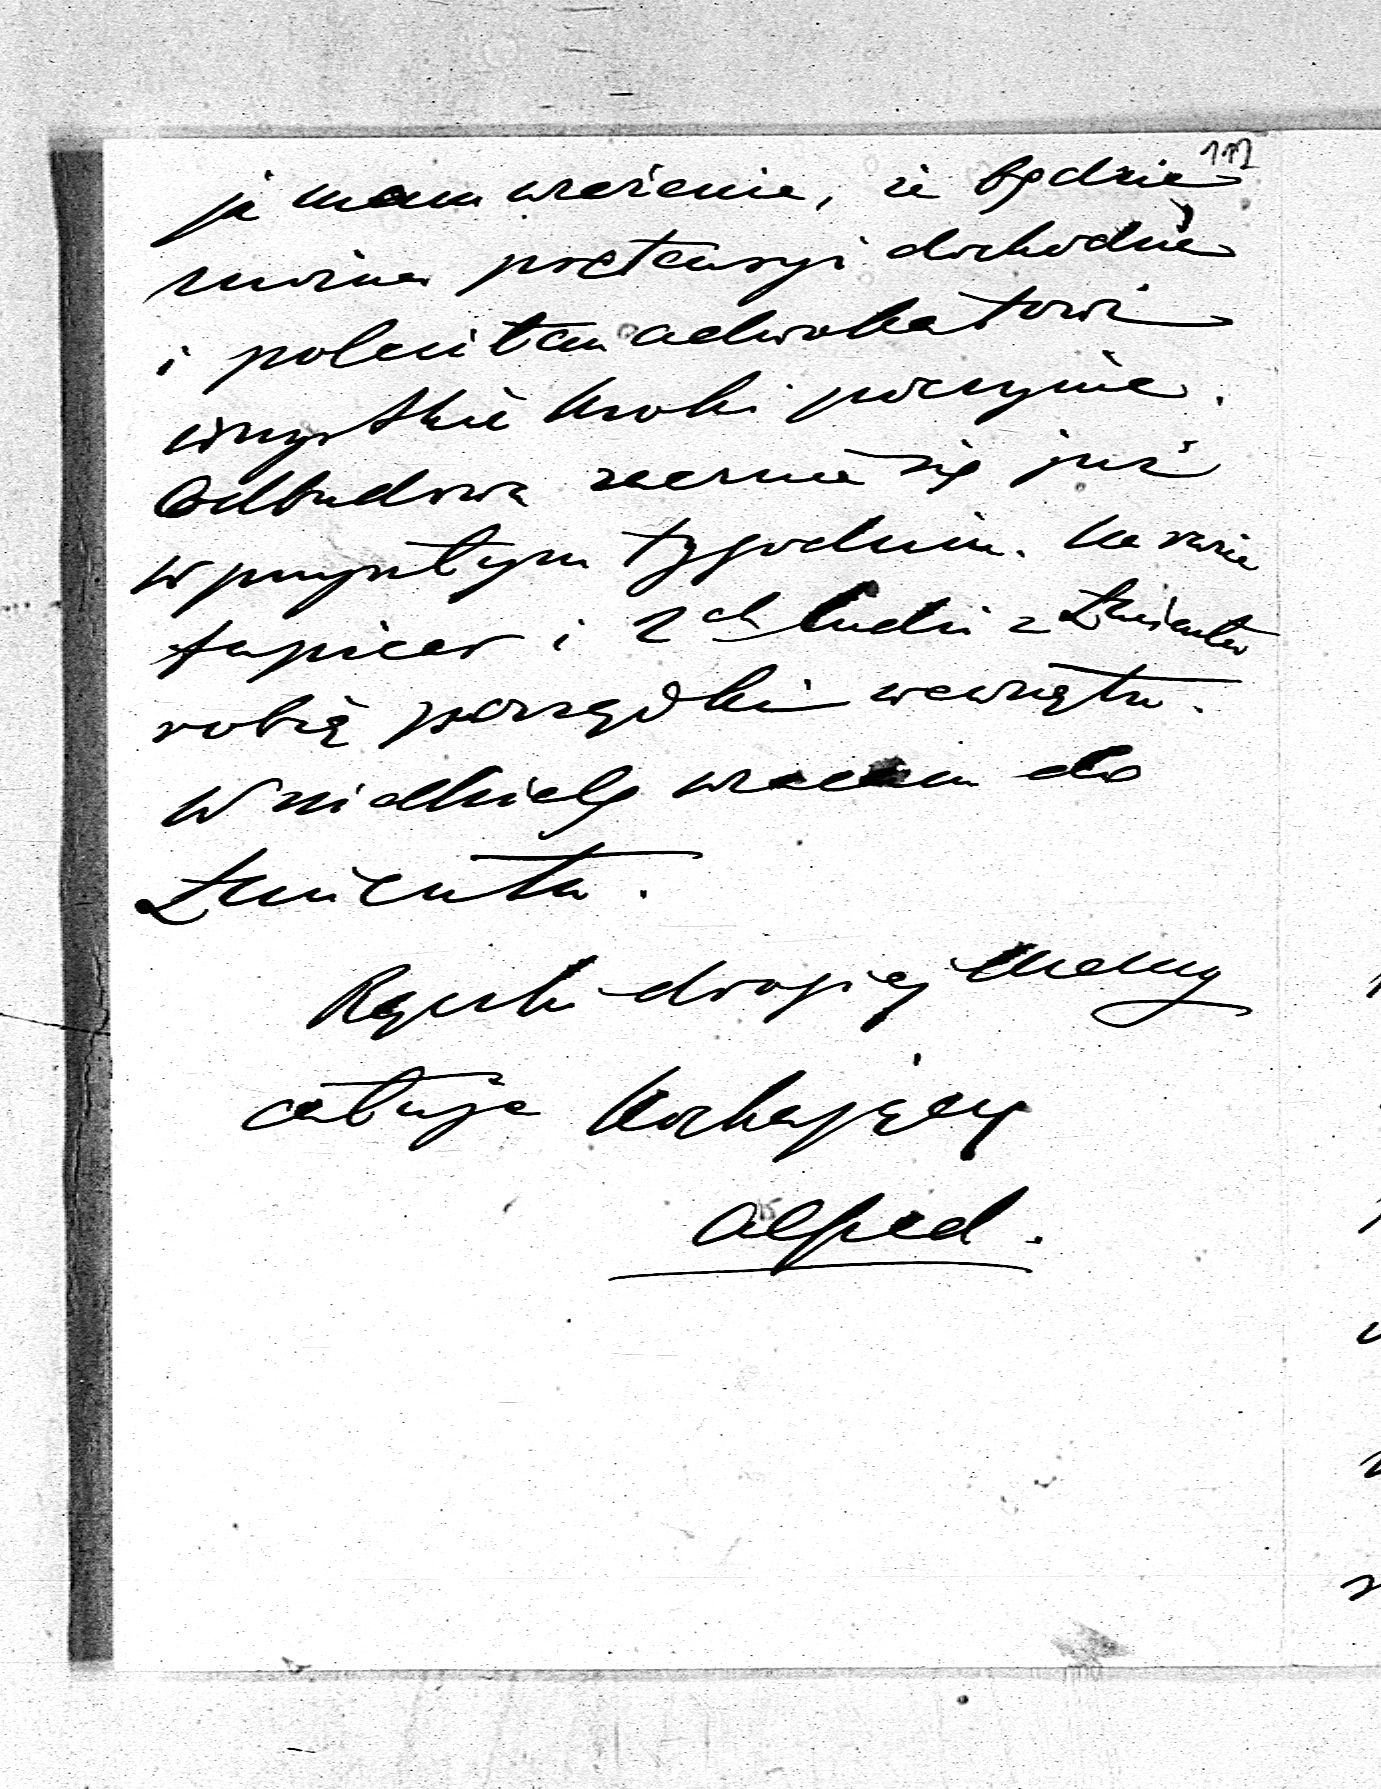 117
ja mam wrażenie, że będzie
można pretensyi dochodzić
i poleciłem adwokatowi
wszystkie kroki poczynić.
Odbudowa zacznie się już
w przyszłym tygodniu. Na razie
tapicer i 2ch ludzi z Łańcuta
robią porządki wewnątrz.
W niedzielę wracam do
Łańcuta.
Rączki drogiej Mamy
całuję Kochający
Alfred.